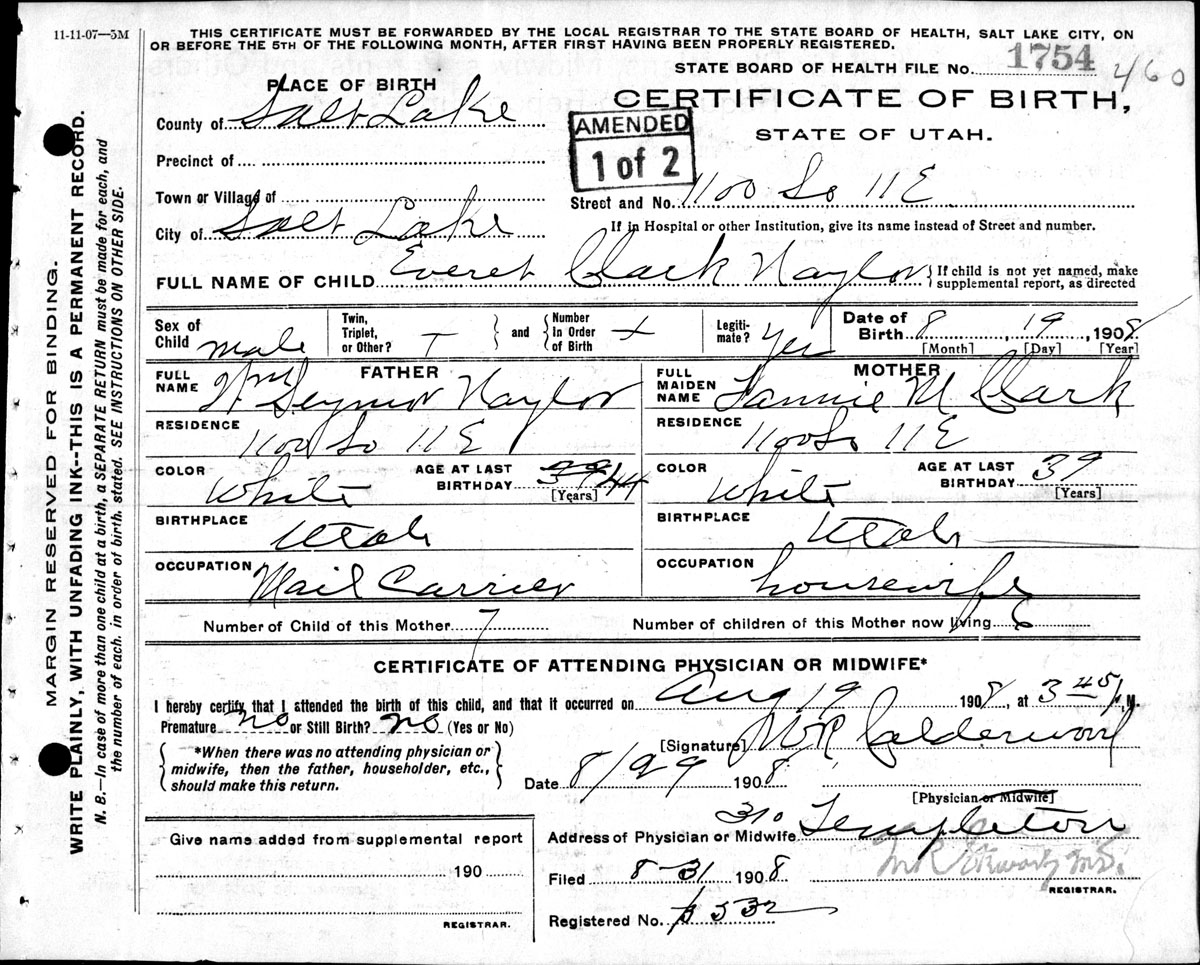 11-11-07—3M
THIS CERTIFICATE MUST BE FORWARDED BY THE LOCAL REGISTRAR TO THE STATE BOARD OF HEALTH, SALT LAKE CITY, ON
OR BEFORE THE 5TH OF THE FOLLOWING MONTH, AFTER FIRST HAVING BEEN PROPERLY REGISTERED.
STATE BOARD OF HEALTH FILE No. 1754 460
PLACE OF BIRTH
CERTIFICATE OF BIRTH,
STATE OF UTAH.
AMENDED
1 of 2
County of Salt Lake
Precinct of
Town or Village of
Street and No. 1100 So 11 E
City of Salt Lake
If in Hospital or other Institution, give its name instead of Street and number.
FULL NAME OF CHILD Everet Clark Naylor { If child is not yet named, make
supplemental report, as directed
Sex of Child male
Twin, Triplet, or Other? and Number In Order of Birth
Legiti-mate? Yes
Date of Birth 8, 19, 1908
[Month] [Day] [Year]
FATHER
FULL NAME Wm Seymor Naylor
RESIDENCE 1100 So 11 E
COLOR White AGE AT LAST BIRTHDAY 39 44
[Years]
BIRTHPLACE Utah
OCCUPATION Mail Carrier
MOTHER
FULL MAIDEN NAME Fannie M Clark
RESIDENCE 1100 So 11 E
COLOR White AGE AT LAST BIRTHDAY 39
[Years]
BIRTHPLACE Utah
OCCUPATION housewife
Number of Child of this Mother 7 Number of children of this Mother now living 6
CERTIFICATE OF ATTENDING PHYSICIAN OR MIDWIFE*
I hereby certify that I attended the birth of this child, and that it occurred on Aug 19 1908, at 3 45 M.
Premature no or Still Birth? no (Yes or No)
*When there was no attending physician or
midwife, then the father, householder, etc.,
should make this return.
[Signature] Calderwood
Date 8/29 1908
[Physician or Midwife]
Address of Physician or Midwife 310 Templeton
Give name added from supplemental report
190
REGISTRAR.
Filed 8-31 1908
REGISTRAR.
Registered No. 3532
MARGIN RESERVED FOR BINDING.
WRITE PLAINLY, WITH UNFADING INK--THIS IS A PERMANENT RECORD.
N. B.—In case of more than one child at a birth, a SEPARATE RETURN must be made for each, and
the number of each, in order of birth, stated. SEE INSTRUCTIONS ON OTHER SIDE.